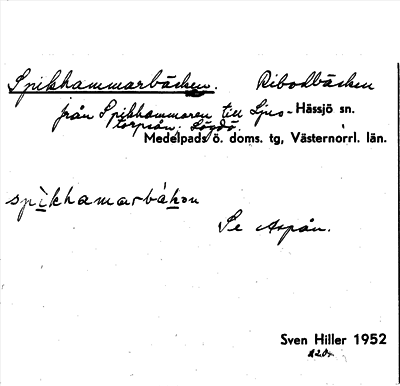 Spikhammarbäcken. Ribodbäcken
från Spikhammaren till Ljus- Hässjö sn.
torpsån. Lögdö.
Medelpads ö. doms. tg, Västernorrl. län.
spikhamarbäkən
Se Aspån.
Sven Hiller 1952